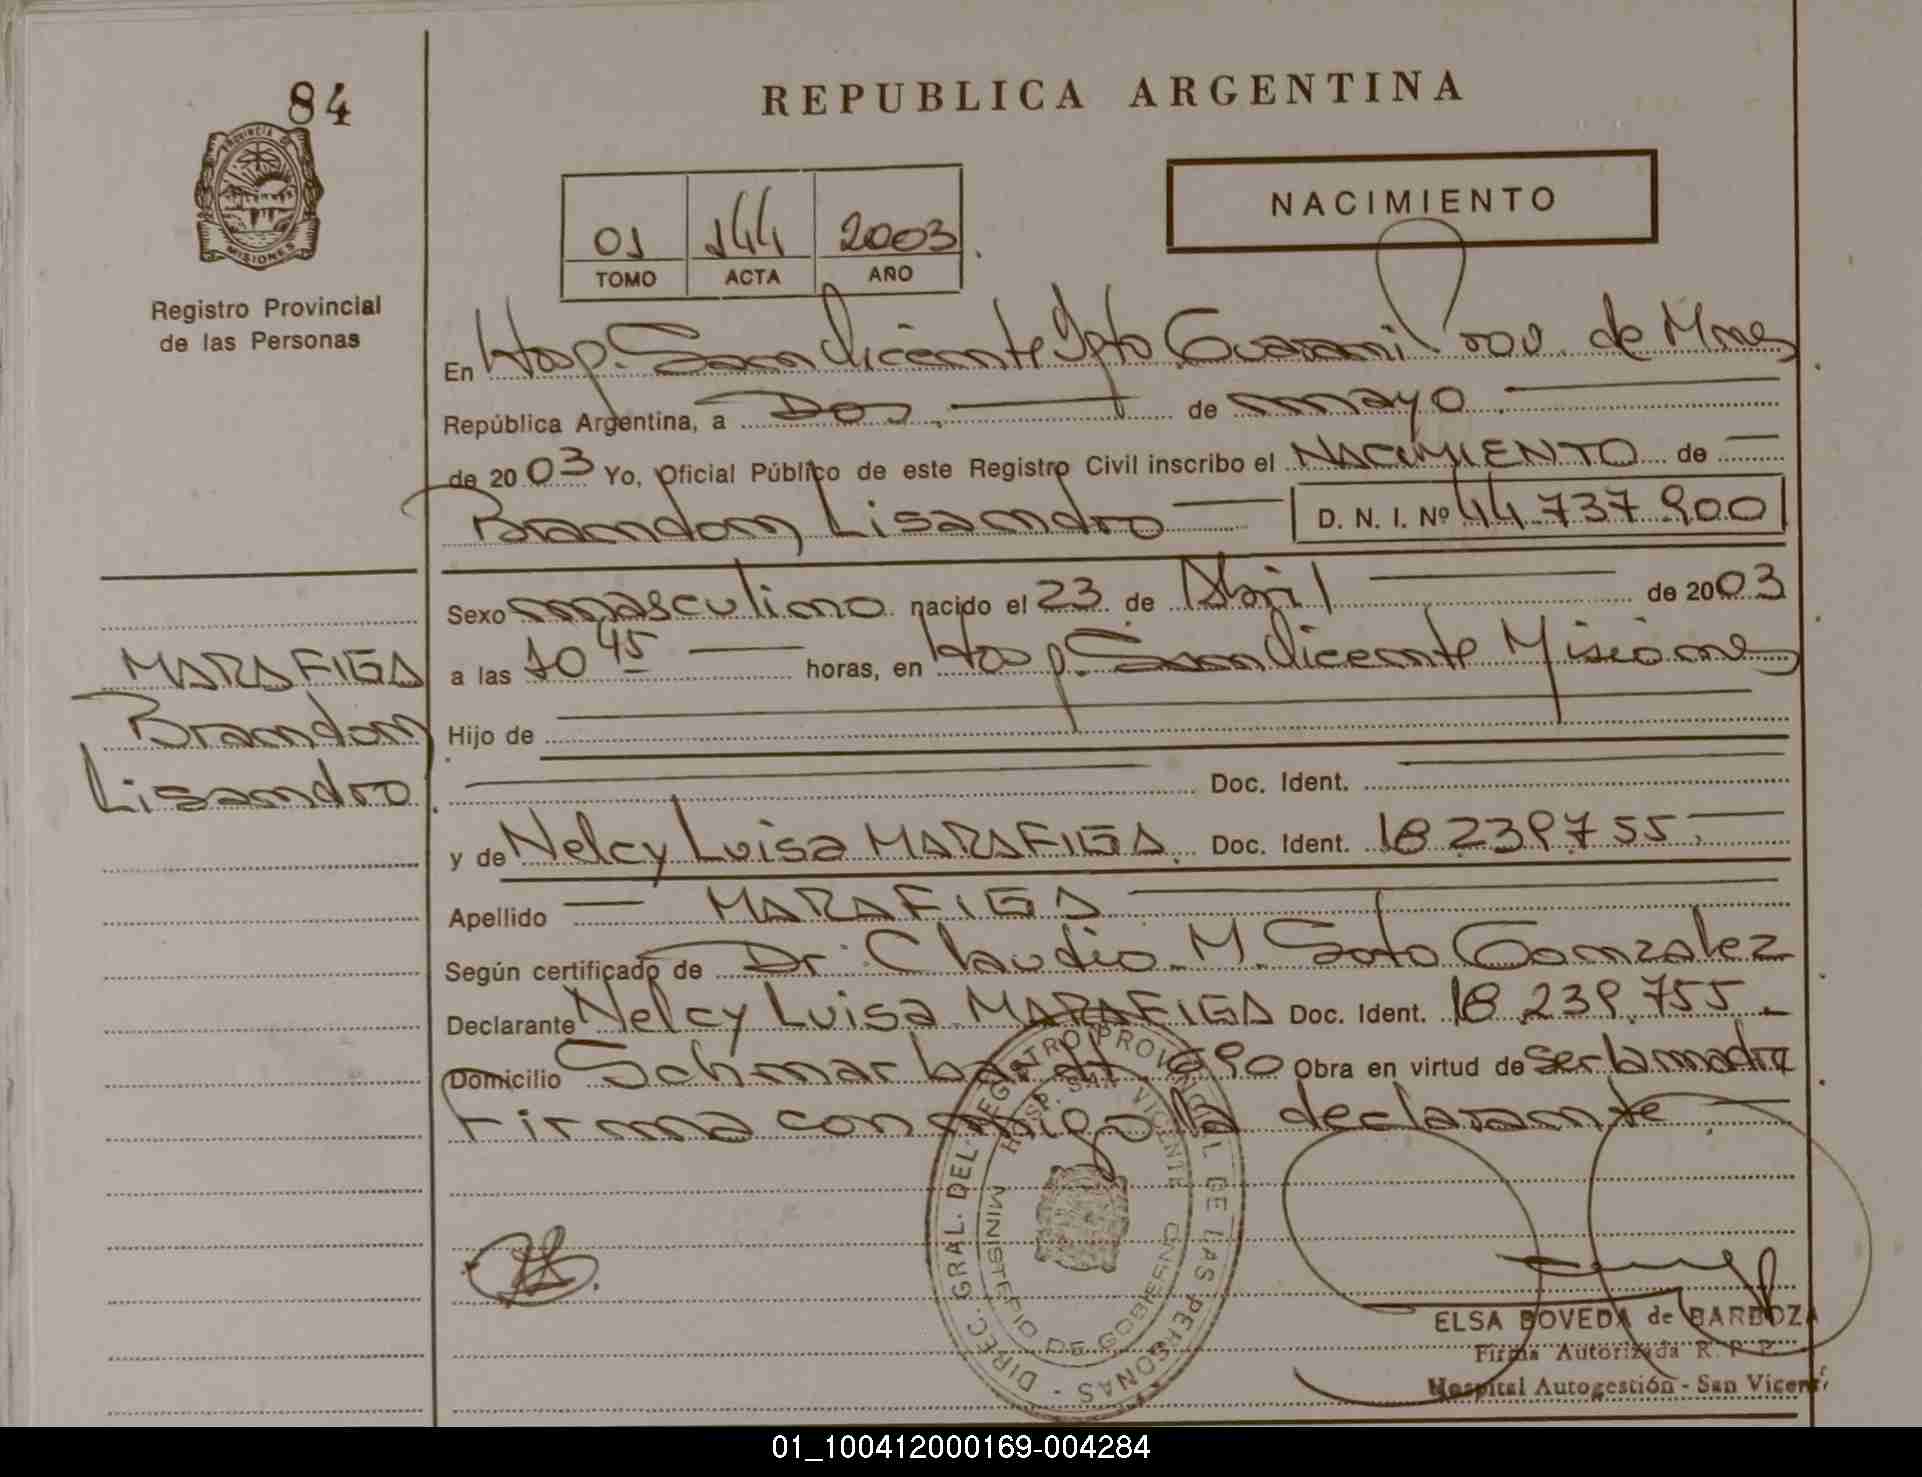 84
PROVINCIA DE
MISIONES
Registro Provincial
de las Personas
REPUBLICA ARGENTINA
01 144 2003
TOMO ACTA AÑO
NACIMIENTO
En Hosp. San Vicente Dpto Guarani Prov. de Mnes
República Argentina, a Dos de mayo
de 2003 Yo, Oficial Público de este Registro Civil inscribo el NACIMIENTO de
Brandon Lisandro D. N. I. Nº 44.737.900
Sexo masculino nacido el 23 de Abril de 2003
a las 10 45 horas, en Hosp. San Vicente Misiones
Hijo de
Doc. Ident.
y de Nelcy Luisa MARAFIGA. Doc. Ident. 18.239.755
Apellido MARAFIGA
Según certificado de Dr. Claudio M. Soto Gonzalez
Declarante Nelcy Luisa MARAFIGA Doc. Ident. 18.239.755
Domicilio Schmarbardt 690 Obra en virtud de ser la madre
Firma conmigo la declarante
MARAFIGA
Brandon
Lisandro
DIREC. GRAL. DEL REGISTRO PROVINCIAL DE LAS PERSONAS
HOSP. SAN VICENTE
MINISTERIO DE GOBIERNO
ELSA BOVEDA de BARBOZA
Firma Autorizada R. P. P.
Hospital Autogestión - San Vicente
01_100412000169-004284